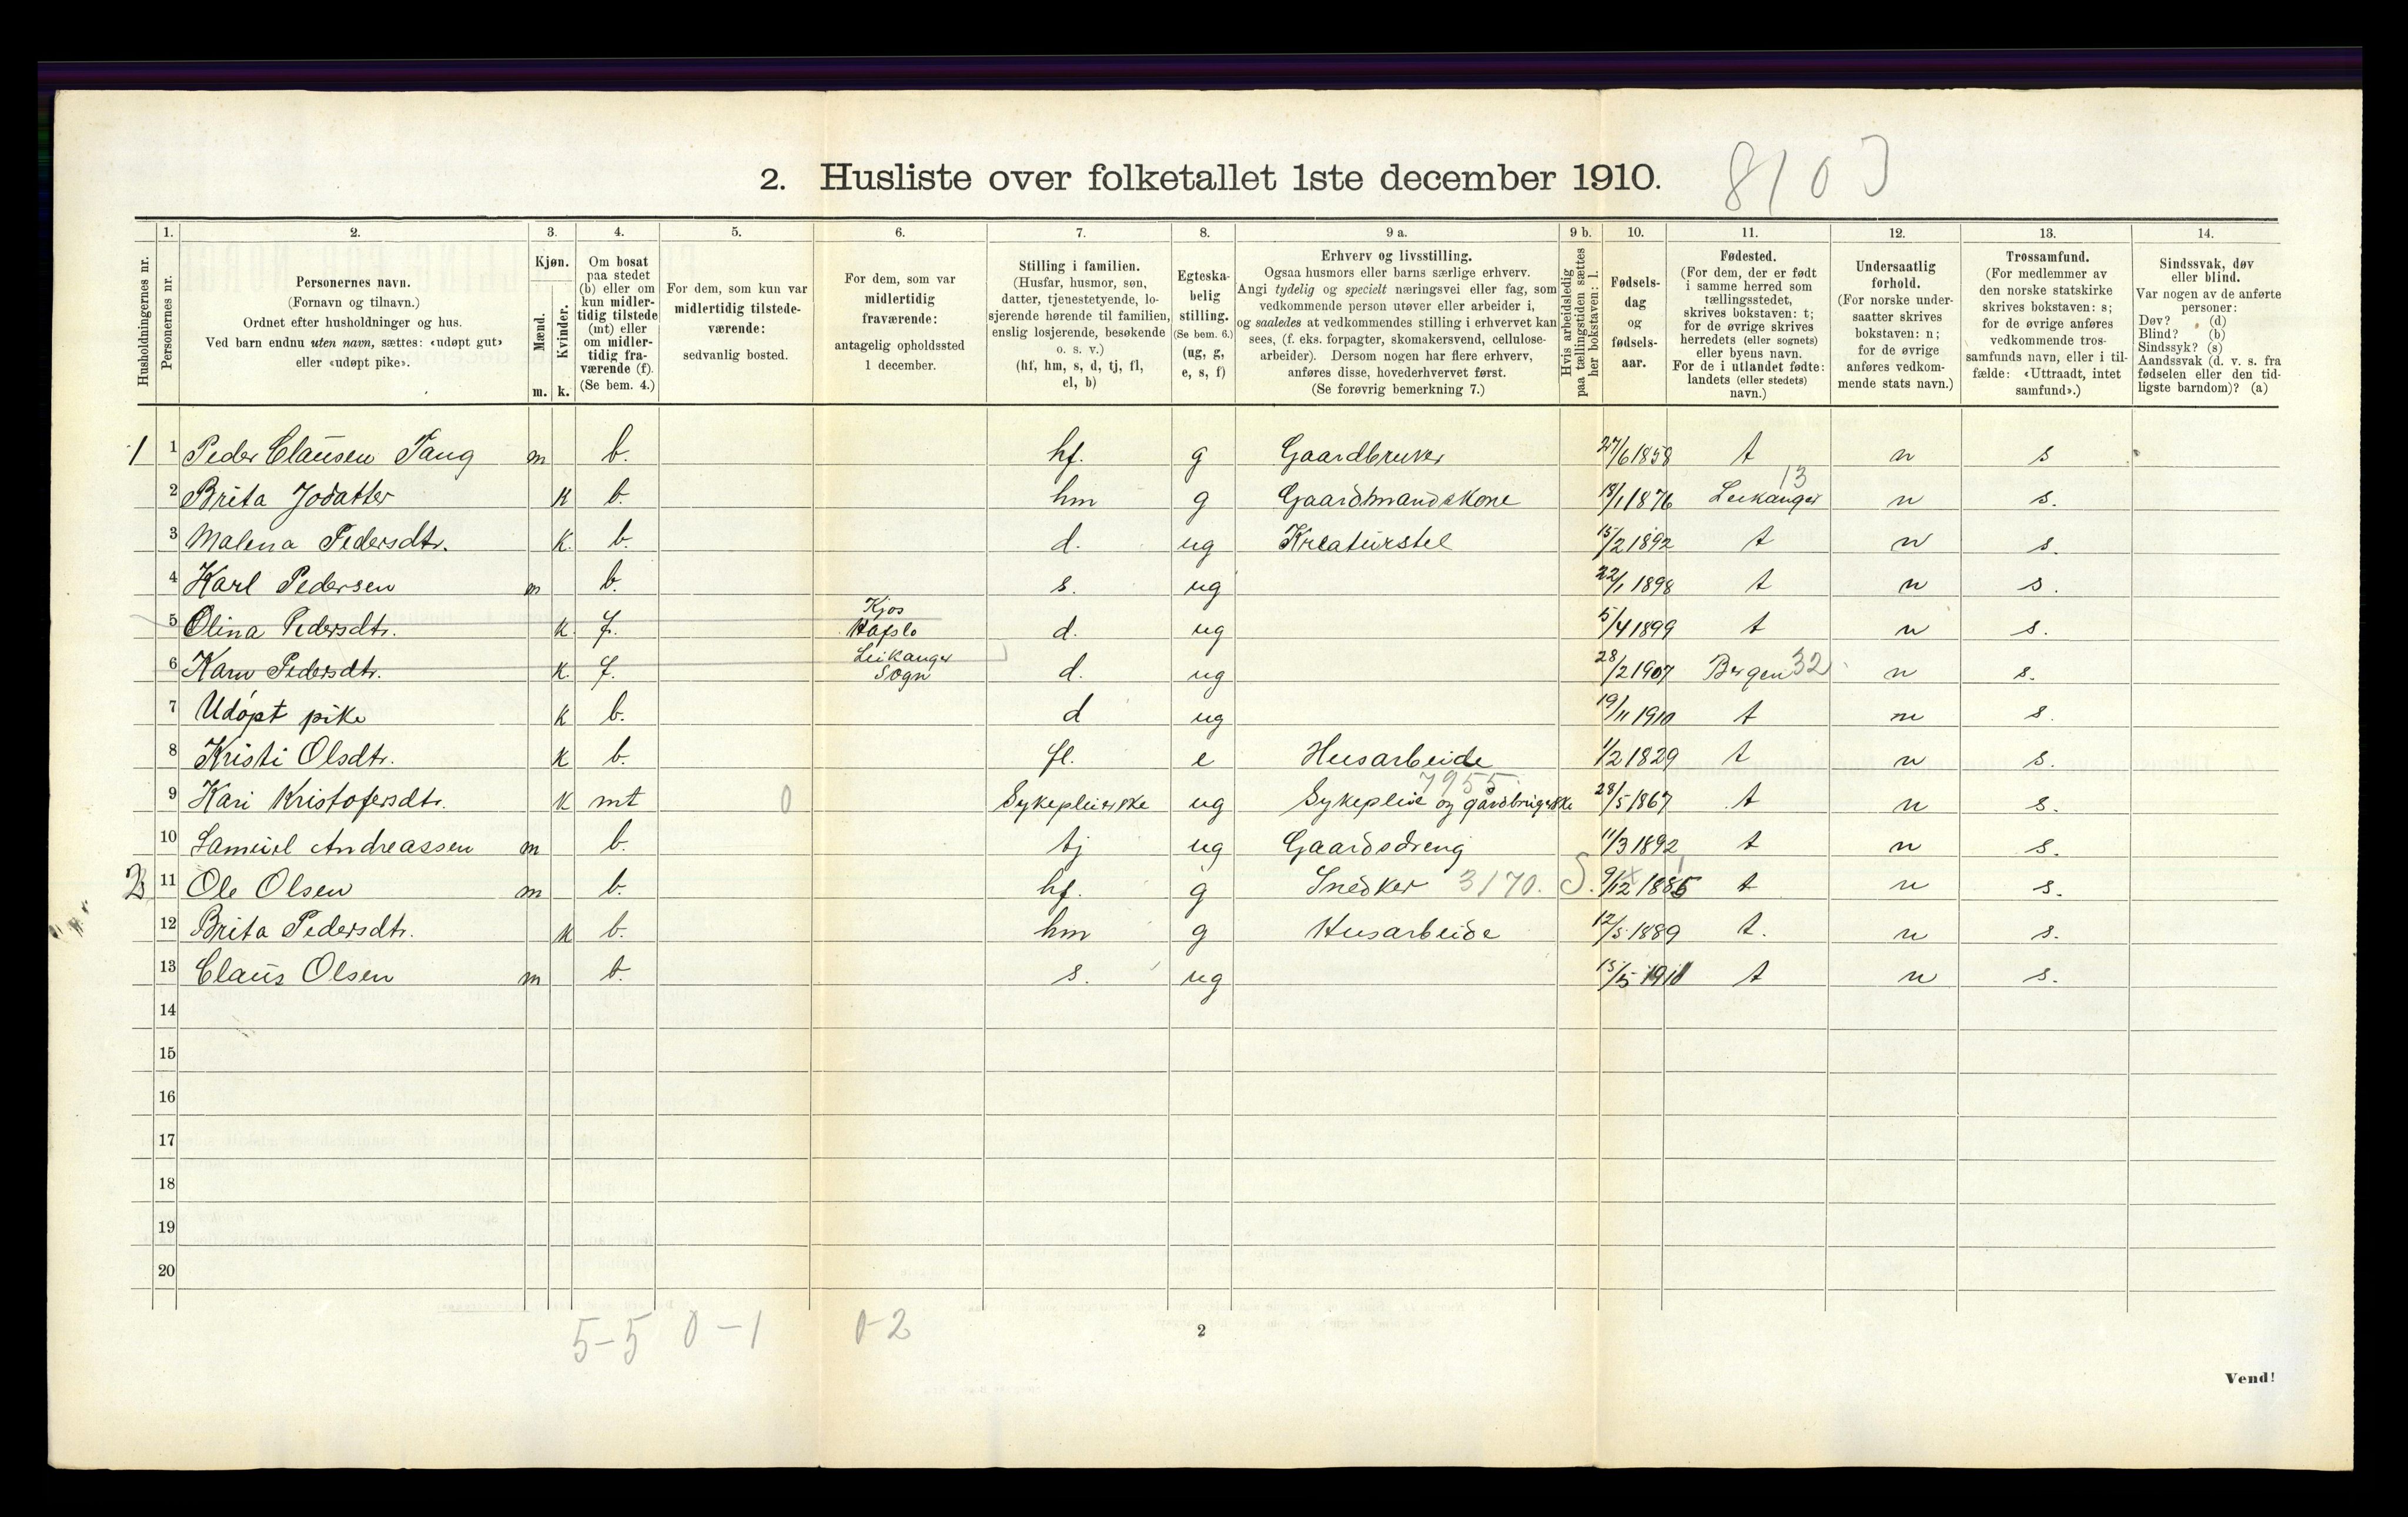 2. Husliste over folketallet 1ste december 1910.
8103
Husholdningernes nr.
1.
Personernes nr.
2.
Personernes navn.
(Fornavn og tilnavn.)
Ordnet efter husholdninger og hus.
Ved barn endnu uten navn, sættes: «udøpt gut»
eller «udøpt pike».
3.
Kjøn.
Mænd.
Kvinder.
m. k.
4.
Om bosat
paa stedet
(b) eller om
kun midler-
tidig tilstede
(mt) eller
om midler-
tidig fra-
værende (f).
(Se bem. 4.)
5.
For dem, som kun var
midlertidig tilstede-
værende:
sedvanlig bosted.
6.
For dem, som var
midlertidig
fraværende:
antagelig opholdssted
1 december.
7.
Stilling i familien.
(Husfar, husmor, søn,
datter, tjenestetyende, lo-
sjerende hørende til familien,
enslig losjerende, besøkende
o. s. v.)
(hf, hm, s, d, tj, fl,
el, b)
8.
Egteska-
belig
stilling.
(Se bem. 6.)
(ug, g,
e, s, f)
9 a.
Erhverv og livsstilling.
Ogsaa husmors eller barns særlige erhverv.
Angi tydelig og specielt næringsvei eller fag, som
vedkommende person utøver eller arbeider i,
og saaledes at vedkommendes stilling i erhvervet kan
sees, (f. eks. forpagter, skomakersvend, cellulose-
arbeider). Dersom nogen har flere erhverv,
anføres disse, hovederhvervet først.
(Se forøvrig bemerkning 7.)
9 b.
Hvis arbeidsledig
paa tællingstiden sættes
her bokstaven: l.
10.
Fødsels-
dag
og
fødsels-
aar.
11.
Fødested.
(For dem, der er født
i samme herred som
tællingsstedet,
skrives bokstaven: t;
for de øvrige skrives
herredets (eller sognets)
eller byens navn.
For de i utlandet fødte:
landets (eller stedets)
navn.)
12.
Undersaatlig
forhold.
(For norske under-
saatter skrives
bokstaven: n;
for de øvrige
anføres vedkom-
mende stats navn.)
13.
Trossamfund.
(For medlemmer av
den norske statskirke
skrives bokstaven: s;
for de øvrige anføres
vedkommende tros-
samfunds navn, eller i til-
fælde: «Uttraadt, intet
samfund».)
14.
Sindssvak, døv
eller blind.
Var nogen av de anførte
personer:
Døv? (d)
Blind? (b)
Sindssyk? (s)
Aandssvak (d. v. s. fra
fødselen eller den tid-
ligste barndom)? (a)
1 1 Peder Clausen Tang m b. hf. g Gaardbruker 27/6 1858 t n s
2 Brita Jodatter K b. hm g Gaardmandskone 18/1 1876 Leikanger 13 n s.
3 Malena Pedersdtr. K. b. d. ug Kreaturstel 15/2 1892 t n s.
4 Karl Pedersen m b. s. ug 22/1 1898 t n s.
5 Olina Pedersdtr. K. f. Kjos Hafslo d. ug 5/4 1899 t n s.
6 Pedersdtr. K. f. Leikanger Sogn d. ug 28/2 1907 Bergen 32 n s.
7 Udøpt pike K b. d ug 19/11 1910 t n s.
8 Kristi Olsdtr. K b. fl. e Husarbeide 1/2 1829 t n s.
9 Kari Kristofersdtr. K mt 0 Sykepleierske ug Sykepleie og gårdbrugerske 7955 28/5 1867 t n s.
10 Samuel Andreassen m b. tj ug Gaardsdreng 11/3 1892 t n s.
2 11 Ole Olsen m b. hf. g Snedker 3170. S. 9/12 1885 t n s.
12 Brita Pedersdtr. K b. hm g Husarbeide 12/5 1889 t. n s.
13 Claus Olsen m b. s. ug 15/5 1910 t n s.
14
15
16
17
18
19
20
5-5 0-1 0-2
2
Vend!